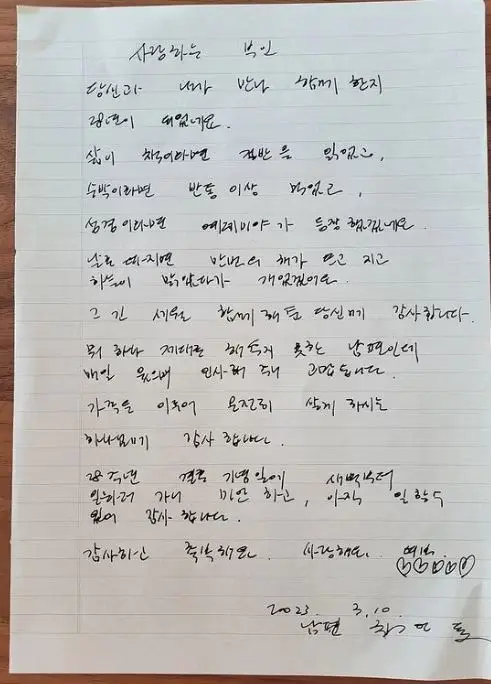 사랑하는 부인
당신과 내가 만나 함께 한지
28년이 되었네요.
삶이 책이라면 절반을 읽었고,
수박이라면 반통 이상 먹었고,
성경이라면 예레미야가 등장 했겠네요.
날로 따지면 만번의 해가 뜨고 지고
하늘이 맑았다가 개었겠어요.
그 긴 세월 함께 해준 당신께 감사합니다.
뭐 하나 제대로 해주지 못하는 남편인데
매일 웃으며 인사해 주니 고맙습니다.
가정을 이루어 온전히 살게 하시는
하나님께 감사 합니다.
28주년 결혼 기념일에 새벽부터
일하러 가니 미안 하고, 아직 일할수
있어 감사 합니다.
감사하고 축복해요. 사랑해요. 여보
2023. 3. 10.
남편 최